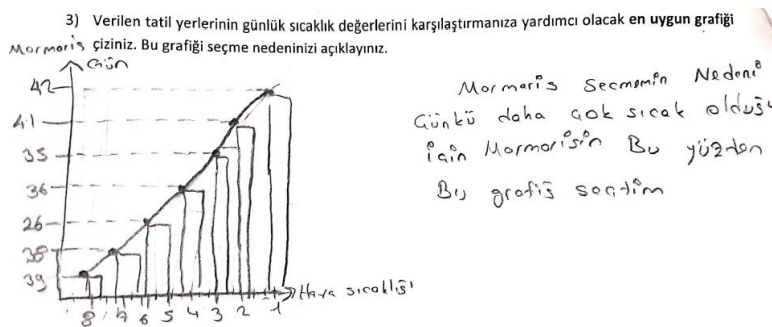 3) Verilen tatil yerlerinin günlük sıcaklık değerlerini karşılaştırmanıza yardımcı olacak en uygun grafiği
çiziniz. Bu grafiği seçme nedeninizi açıklayınız.
Marmaris
Gün
42
41
35
36
26
38
39
8 7 6 5 4 3 2 1
Hava sıcaklığı
Marmaris Secmemin Nedeni
Günkü daha çok sıcak olduğu
için Marmarisin Bu yüzden
Bu grafiği seçtim